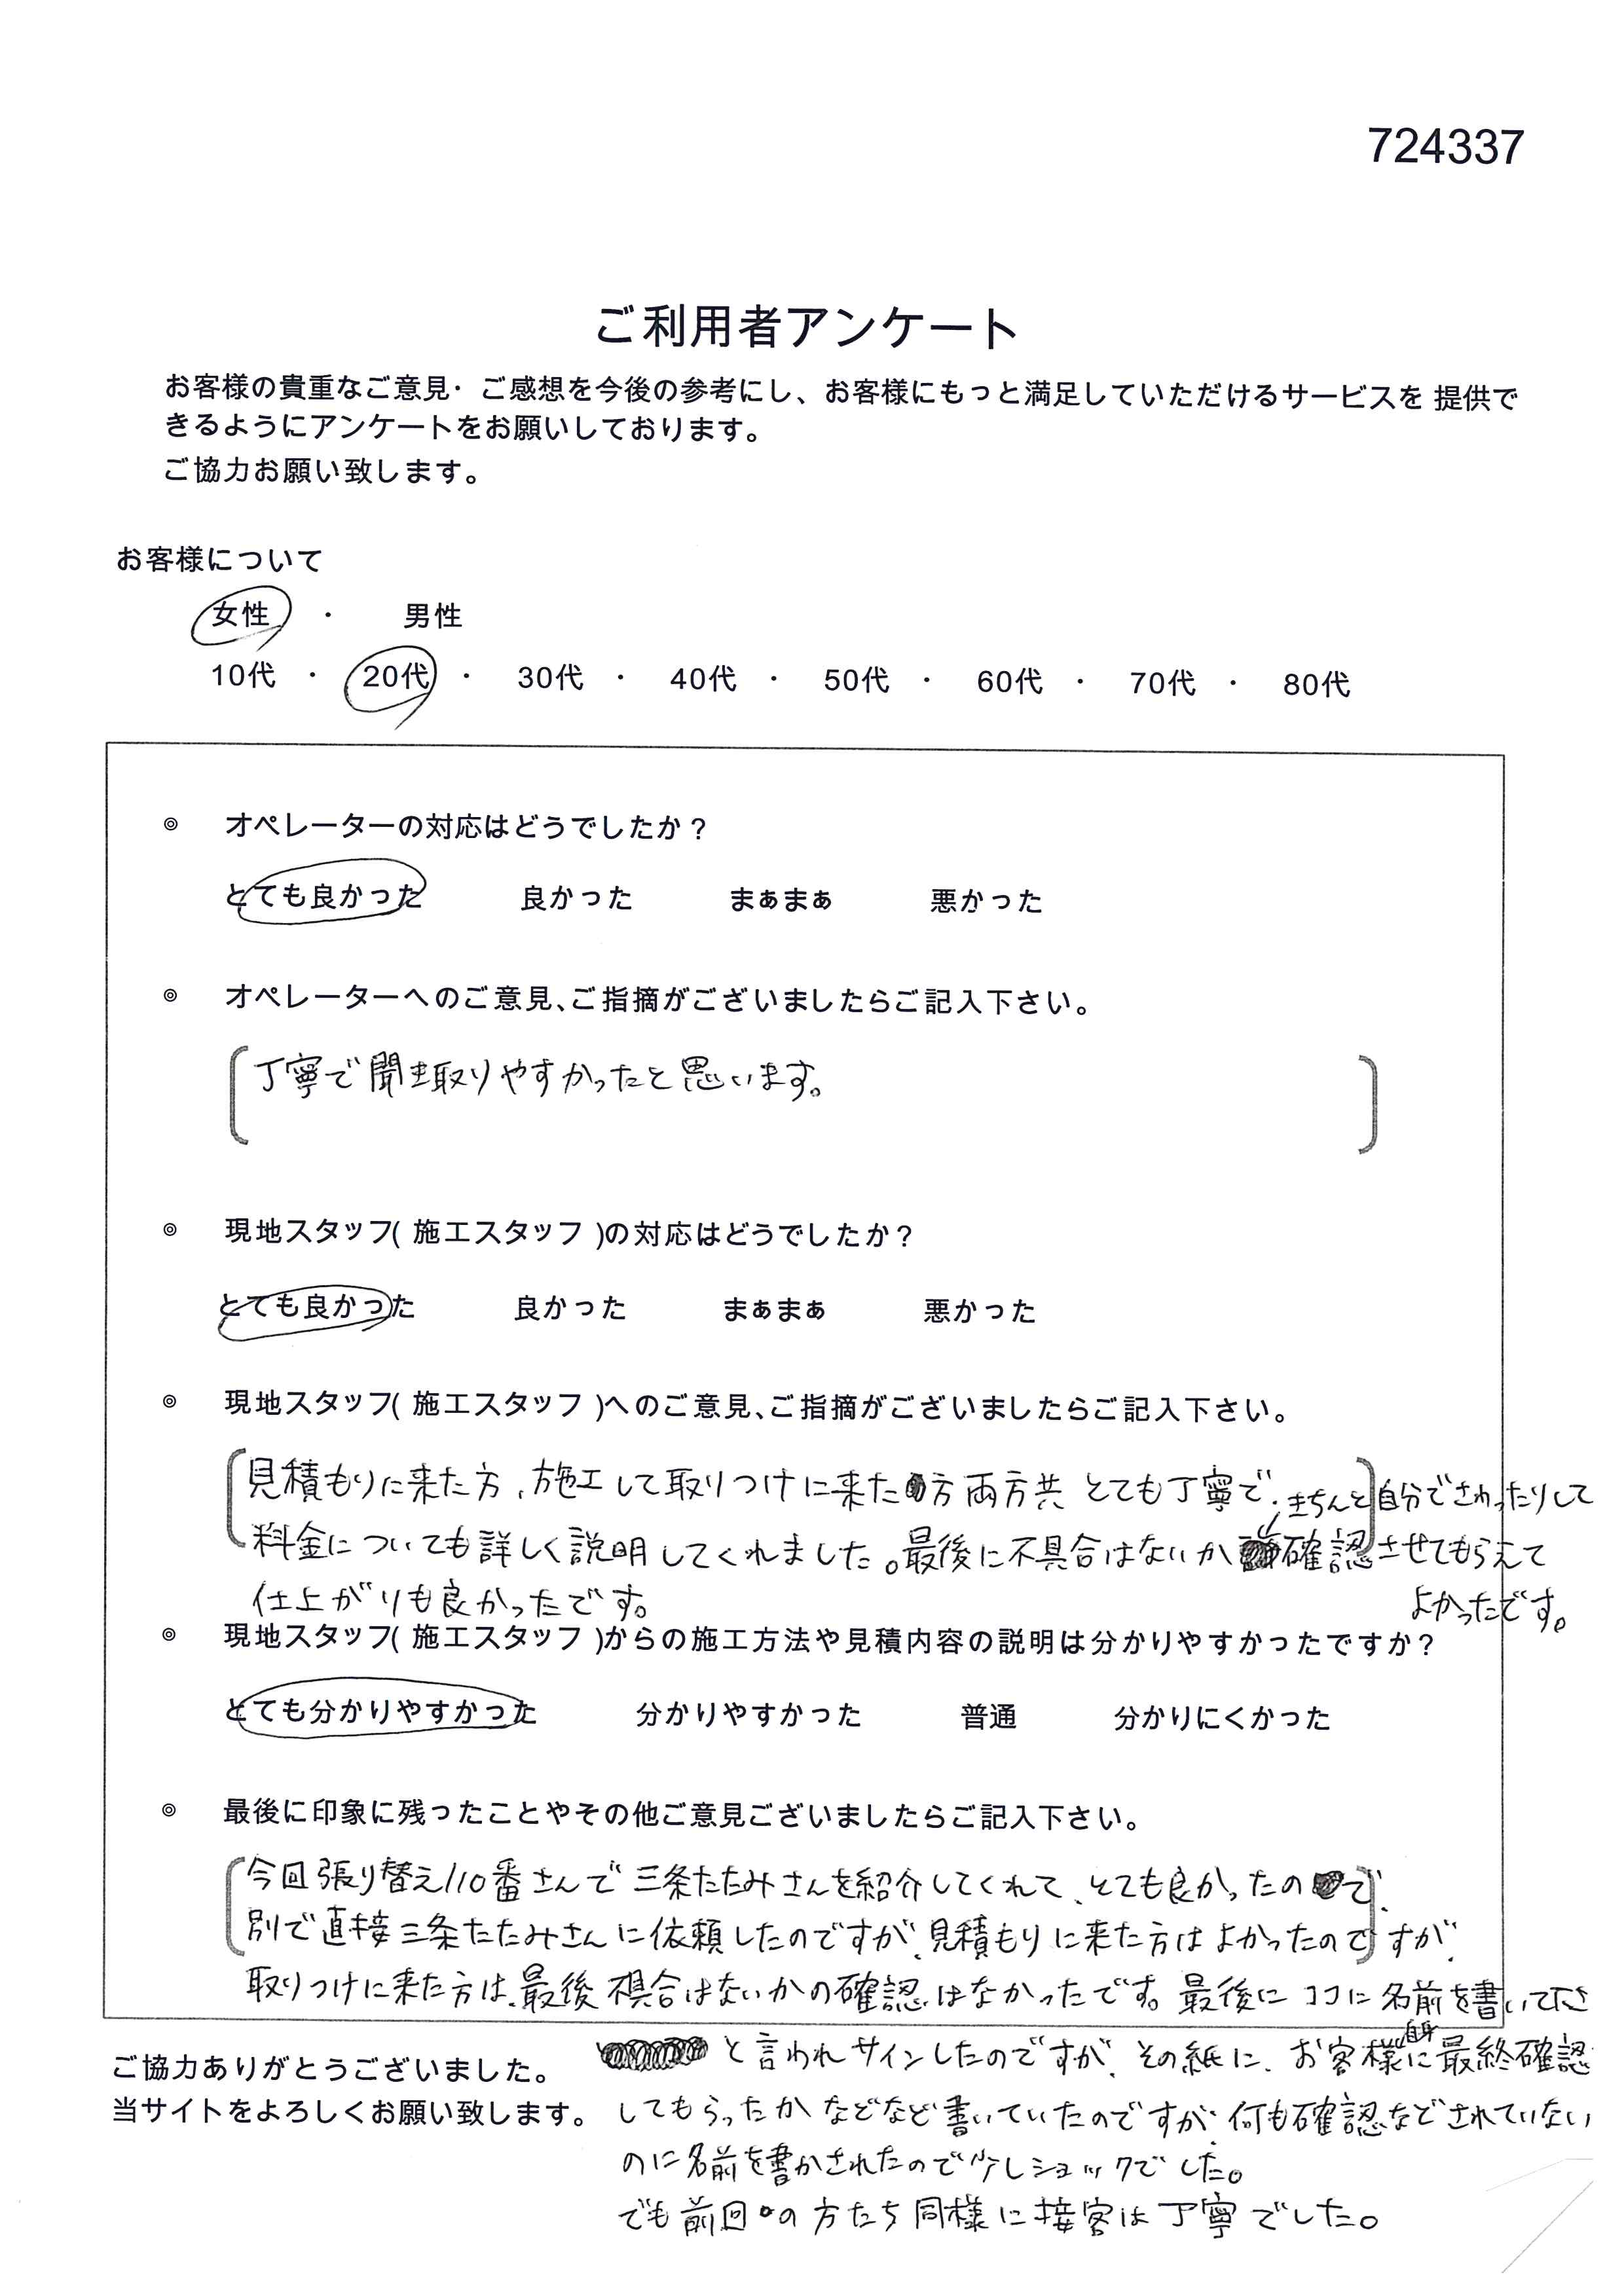 724337
ご利用者アンケート
お客様の貴重なご意見・ご感想を今後の参考にし、お客様にもっと満足していただけるサービスを提供で
きるようにアンケートをお願いしております。
ご協力お願い致します。
お客様について
女性 ・ 男性
10代 ・ 20代 ・ 30代 ・ 40代 ・ 50代 ・ 60代 ・ 70代 ・ 80代
◎ オペレーターの対応はどうでしたか？
とても良かった 良かった まぁまぁ 悪かった
◎ オペレーターへのご意見、ご指摘がございましたらご記入下さい。
丁寧で聞き取りやすかったと思います。
◎ 現地スタッフ( 施工スタッフ )の対応はどうでしたか？
とても良かった 良かった まぁまぁ 悪かった
◎ 現地スタッフ( 施工スタッフ )へのご意見、ご指摘がございましたらご記入下さい。
見積もりに来た方、施工して取りつけに来た方両方共とても丁寧で、
料金についても詳しく説明してくれました。最後に不具合はないかきちんと自分でさわったりして
確認させてもらえて
よかったです。
仕上がりも良かったです。
◎ 現地スタッフ( 施工スタッフ )からの施工方法や見積内容の説明は分かりやすかったですか？
とても分かりやすかった 分かりやすかった 普通 分かりにくかった
◎ 最後に印象に残ったことやその他ご意見ございましたらご記入下さい。
今回張り替え110番さんで三条たたみさんを紹介してくれて、とても良かったので、
別で直接三条たたみさんに依頼したのですが、見積もりに来た方はよかったのですが、
取りつけに来た方は、最後不具合はないかの確認はなかったです。最後にココに名前を書いて下さい
と言われサインしたのですが、その紙に、お客様自身に最終確認
してもらったかなどなど書いていたのですが、何も確認などされていない
のに名前を書かされたので少しショックでした。
でも前回の方たち同様に接客は丁寧でした。
ご協力ありがとうございました。
当サイトをよろしくお願い致します。